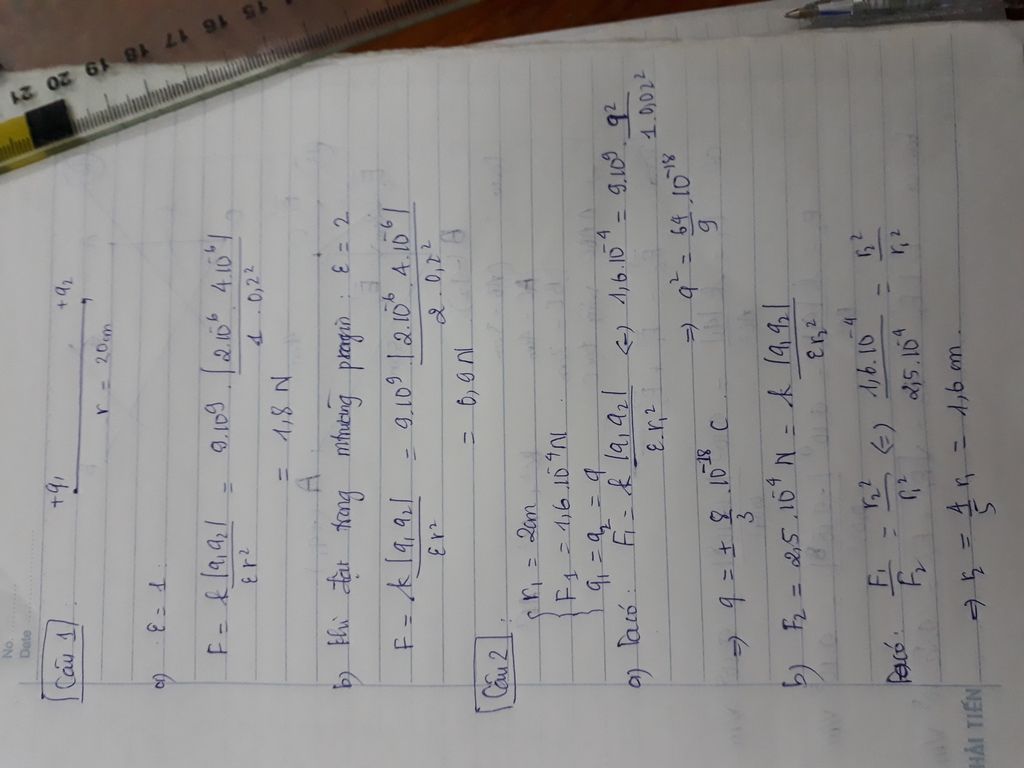 No.
Date
Câu 1
+q₁ +q₂
r = 20cm
a) ε = 1
F = k |q₁q₂| / εr² = 9.10⁹ . |2.10⁻⁶ 4.10⁻⁶| / 1 . 0,2²
= 1,8 N
b) Khi đặt trong môi trường paragin : ε = 2
F = k |q₁q₂| / εr² = 9.10⁹ . |2.10⁻⁶ 4.10⁻⁶| / 2 . 0,2²
= 0,9 N
Câu 2
r₁ = 2cm
F₁ = 1,6.10⁻⁴ N
q₁ = q₂ = q
a) Ta có: F₁ = k |q₁q₂| / ε.r₁² <=> 1,6.10⁻⁴ = 9.10⁹ . q² / 1.0,02²
=> q² = 64/9 .10⁻¹⁸
=> q = ± 8/3 .10⁻¹⁸ C
b) F₂ = 2,5.10⁻⁴ N = k |q₁q₂| / εr₂²
Ta có: F₁/F₂ = r₂²/r₁² <=> 1,6.10⁻⁴ / 2,5.10⁻⁴ = r₂²/r₁²
=> r₂ = 4/5 r₁ = 1,6 cm
HẢI TIẾN
15 16 17 18 19 20 21